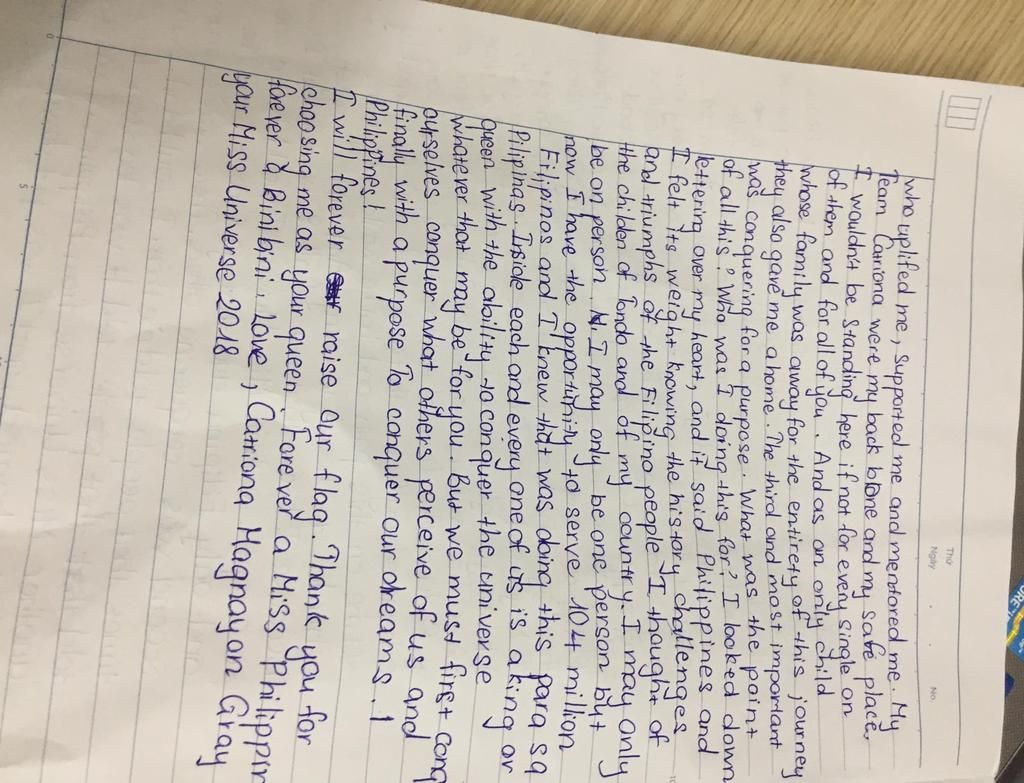 Thứ
Ngày
No.
who uplifed me, supported me and mentored me. My
Team Catriona were my back bone and my safe place,
I wouldn't be standing here if not for every single on
of them and for all of you. And as an only child
whose family was away for the entirety of this journey
they also gave me a home. The third and most important
was conquering for a purpose. What was the point
of all this? Who was I doing this for? I looked down
lettering over my heart, and it said Philippines and
I felt its weight knowing the history challenges
and triumphs of the Filipino people I thought of
the childen of Tondo and of my country. I may only
be on person. I may only be one person but
now I have the opportunity to serve 104 million
Filipinos and I knew that was doing this para sa
Pilipinas. Inside each and every one of us is a king or
queen with the ability to conquer the universe
whatever that may be for you. But we must first conq
ourselves conquer what others perceive of us and
finally with a purpose To conquer our dreams. !
Philippines!
I will forever raise our flag. Thank you for
choosing me as your queen. Forever a Miss Philippin
forever a Binibini. Love, Catriona Magnayon Gray
your Miss Universe 2018